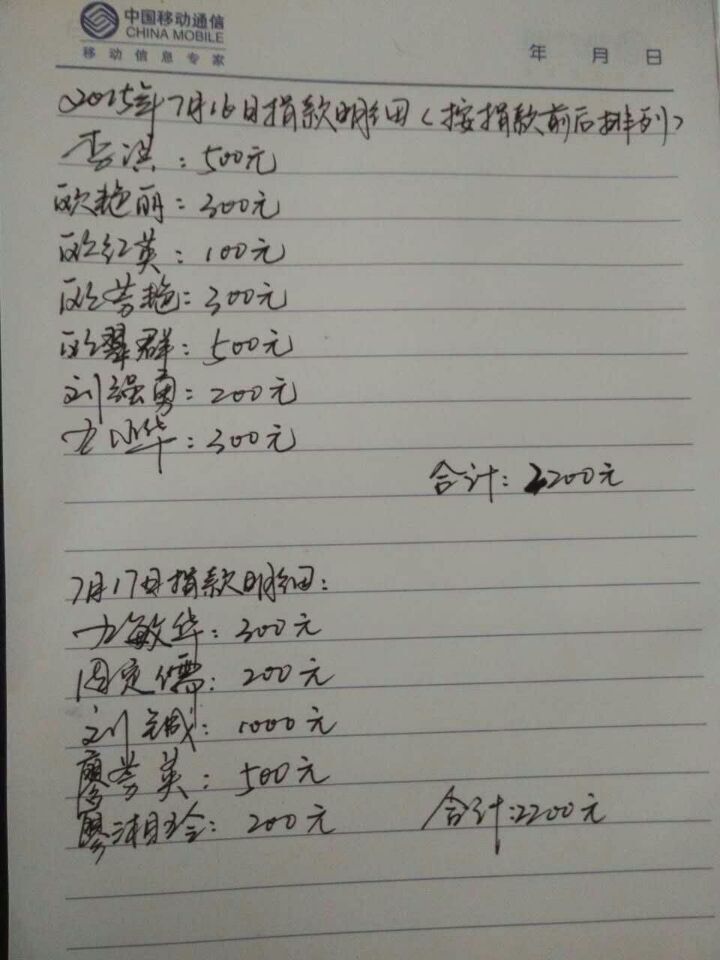 中国移动通信
CHINA MOBILE
移动信息专家
年 月 日
2015年7月16日捐款明细(按捐款前后排列)
李淇:500元
欧艳丽:300元
欧红英:100元
欧芳艳:300元
欧翠群:500元
刘强勇:200元
方小华:300元
合计:2200元
7月17日捐款明细:
方敏华:300元
周定儒:200元
刘铖:1000元
廖芳英:500元
廖湘玲:200元 合计:2200元